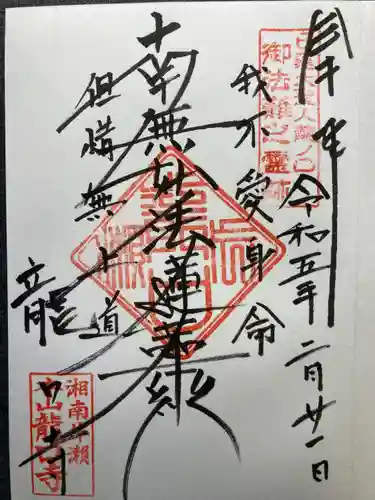 奉拝
令和五年二月廿一日
御法難之霊跡
我不愛身命
南無妙法蓮華経
但惜無上道
龍口寺
湘南片瀬
龍口寺